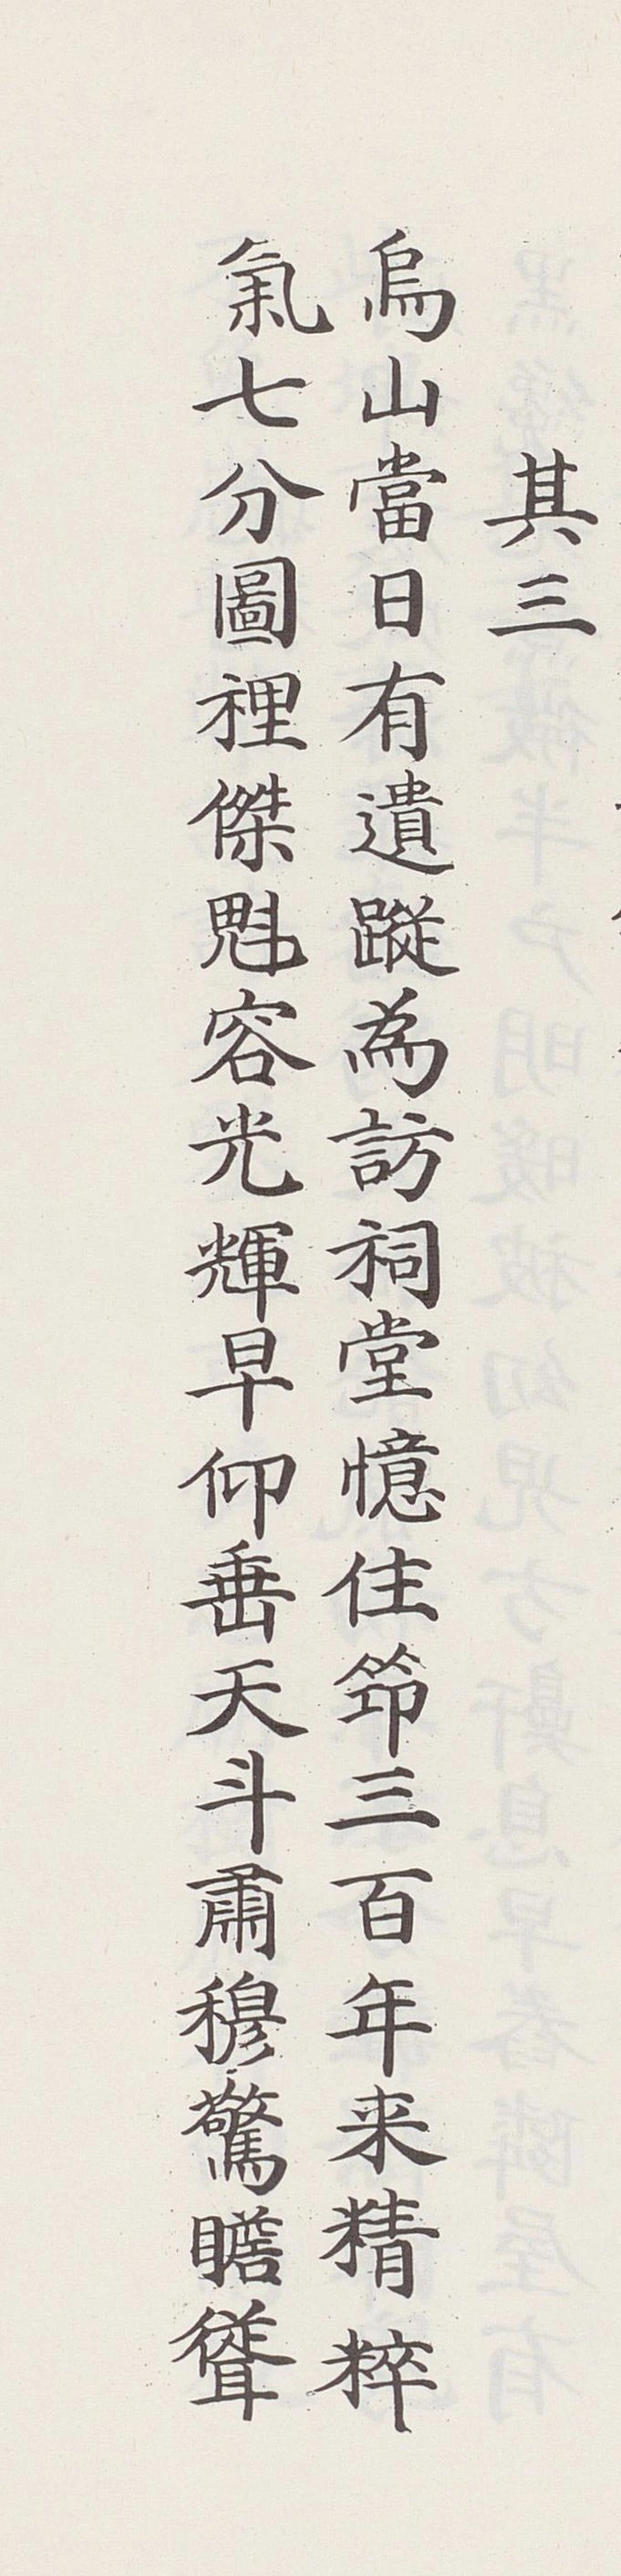 其三
烏山當日有遺蹤為訪祠堂憶住筇三百年来精粹
氣七分圖裡傑魁容光輝早仰垂天斗肅穆驚瞻聳